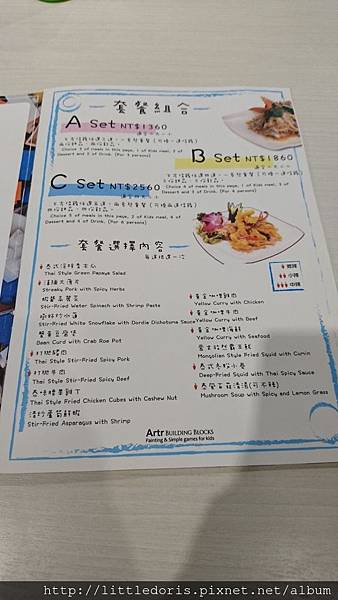 套餐組合
A Set NT$1360
Choice 3 of meals in this page, 1 of Kids meal, 3 of
Dessert and 3 of Drink. (For 3 persons)
B Set NT$1860
C Set NT$2560
Choice 5 of meals in this page, 2 of Kids meal, 6 of
Dessert and 6 of Drink. (For 6 persons)
套餐選擇內容
每道任選一份
微辣
小辣
中辣
泰式涼拌青木瓜
Thai Style Green Papaya Salad
Streaky Pork with Spicy Herbs
蝦醬高麗菜
Stir-Fried Water Spinach with Shrimp Paste
Stir-Fried White Snowflake with Dordie Dichotuna Sauce
蟹黃豆腐煲
Bean Curd with Crab Roe Pot
打拋豬肉
Thai Style Stir-Fried Spicy Pork
打拋牛肉
Thai Style Stir-Fried Spicy Beef
泰味腰果雞丁
Thai Style Fried Chicken Cubes with Cashew Nut
清炒蘆筍鮮蝦
Stir-Fried Asparagus with Shrimp
黃金咖哩雞肉
Yellow Curry with Chicken
黃金咖哩牛肉
Yellow Curry with Beef
黃金咖哩海鮮
Yellow Curry with Seafood
Mongolian Style Fried Squid with Cumin
Deep-Fried Squid with Thai Spicy Sauce
Mushroom Soup with Spicy and Lemon Grass
Artr BUILDING BLOCKS
Painting & Simple games for kids
http://littledoris.pixnet.net/album